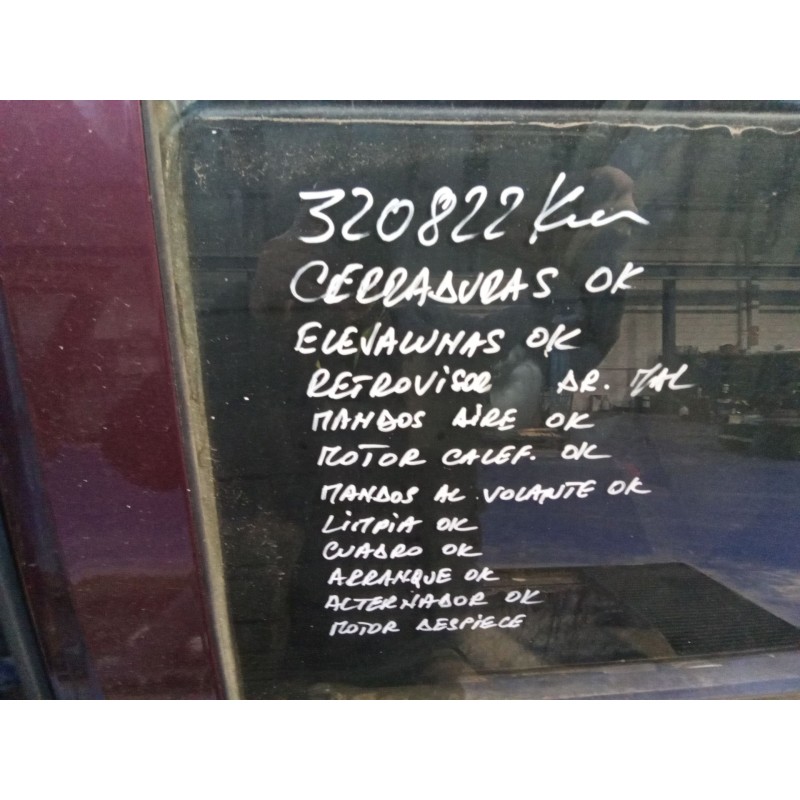 320822 Km
CERRADURAS OK
ELEVALUNAS OK
RETROVISOR DR. MAL
MANDOS AIRE OK
MOTOR CALEF. OK
MANDOS AL VOLANTE OK
LIMPIA OK
CUADRO OK
ARRANQUE OK
ALTERNADOR OK
MOTOR DESPIECE